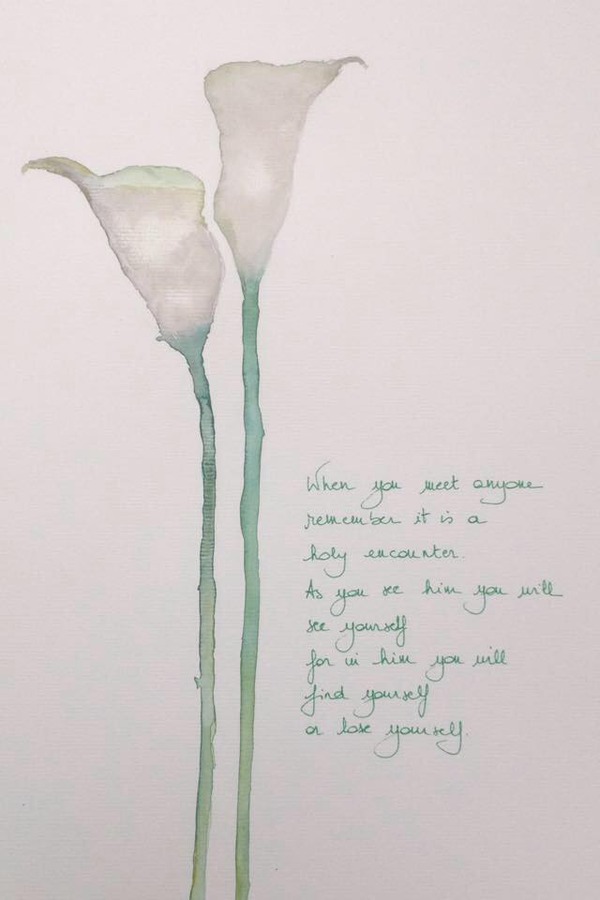 When you meet anyone
remember it is a
holy encounter.
As you see him you will
see yourself
for in him you will
find yourself
or lose yourself.